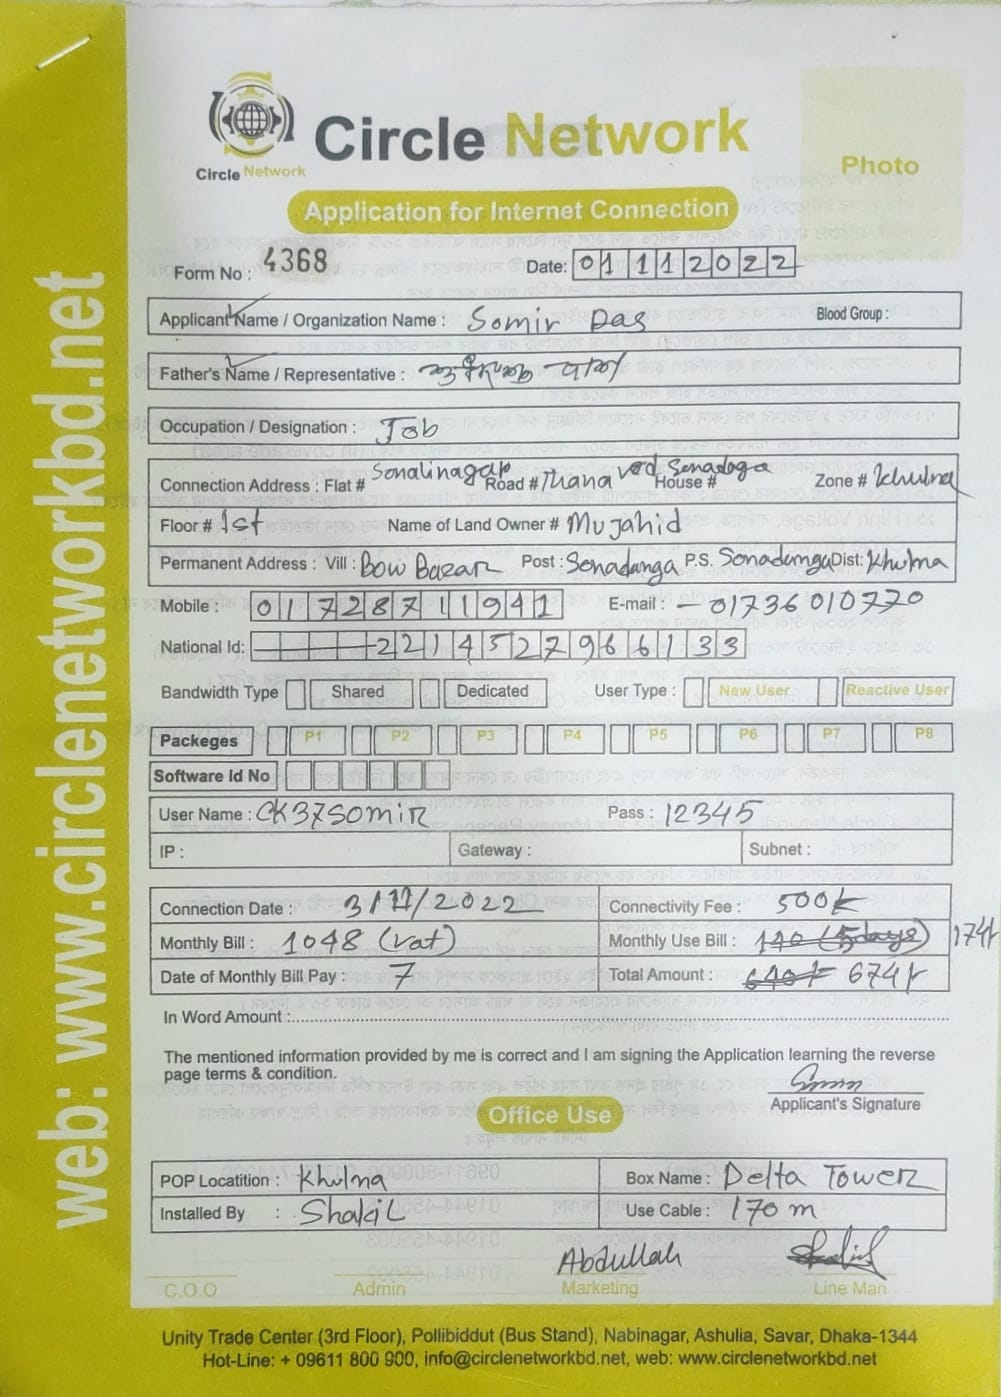 web: www.circlenetworkbd.net
Circle Network
Circle Network
Photo
Application for Internet Connection
Form No : 4368 Date: 01 11 2022
Applicant Name / Organization Name : Somir Das Blood Group :
Father's Name / Representative :
Occupation / Designation : Job
Connection Address : Flat # Sonalinagar Road # Thana House # Zone # Khulna
Floor # 1st Name of Land Owner # Mujahid
Permanent Address : Vill : Bow Bazar Post : Sonadanga P.S. Sonadanga Dist: Khulna
Mobile : 01728711941 E-mail : - 01736010770
National Id: 2214527966133
Bandwidth Type Shared Dedicated User Type : New User Reactive User
Packeges P1 P2 P3 P4 P5 P6 P7 P8
Software Id No
User Name : CK37Somir Pass : 12345
IP : Gateway : Subnet :
Connection Date : 3/11/2022 Connectivity Fee : 500/-
Monthly Bill : 1048 (vat) Monthly Use Bill : 170 (5days) 174/-
Date of Monthly Bill Pay : 7 Total Amount : 670/- 674/-
In Word Amount :
The mentioned information provided by me is correct and I am signing the Application learning the reverse
page terms & condition.
Applicant's Signature
Office Use
POP Locatition : Khulna Box Name : Delta Tower
Installed By : Shakil Use Cable : 170 m
Abdullah
C.O.O Admin Marketing Line Man
Unity Trade Center (3rd Floor), Pollibiddut (Bus Stand), Nabinagar, Ashulia, Savar, Dhaka-1344
Hot-Line: + 09611 800 900, info@circlenetworkbd.net, web: www.circlenetworkbd.net